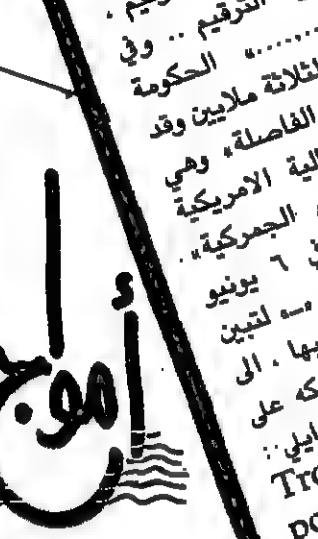 الترقيم .. وفي
.......» الحكومة
الثلاثة ملايين وقد
الفاصلة، وهي
الية الامريكية
الجمركية».
٦ يونيو
لتبين
يها ، الى
كه على
ايلي :
Tro
po
أمواج